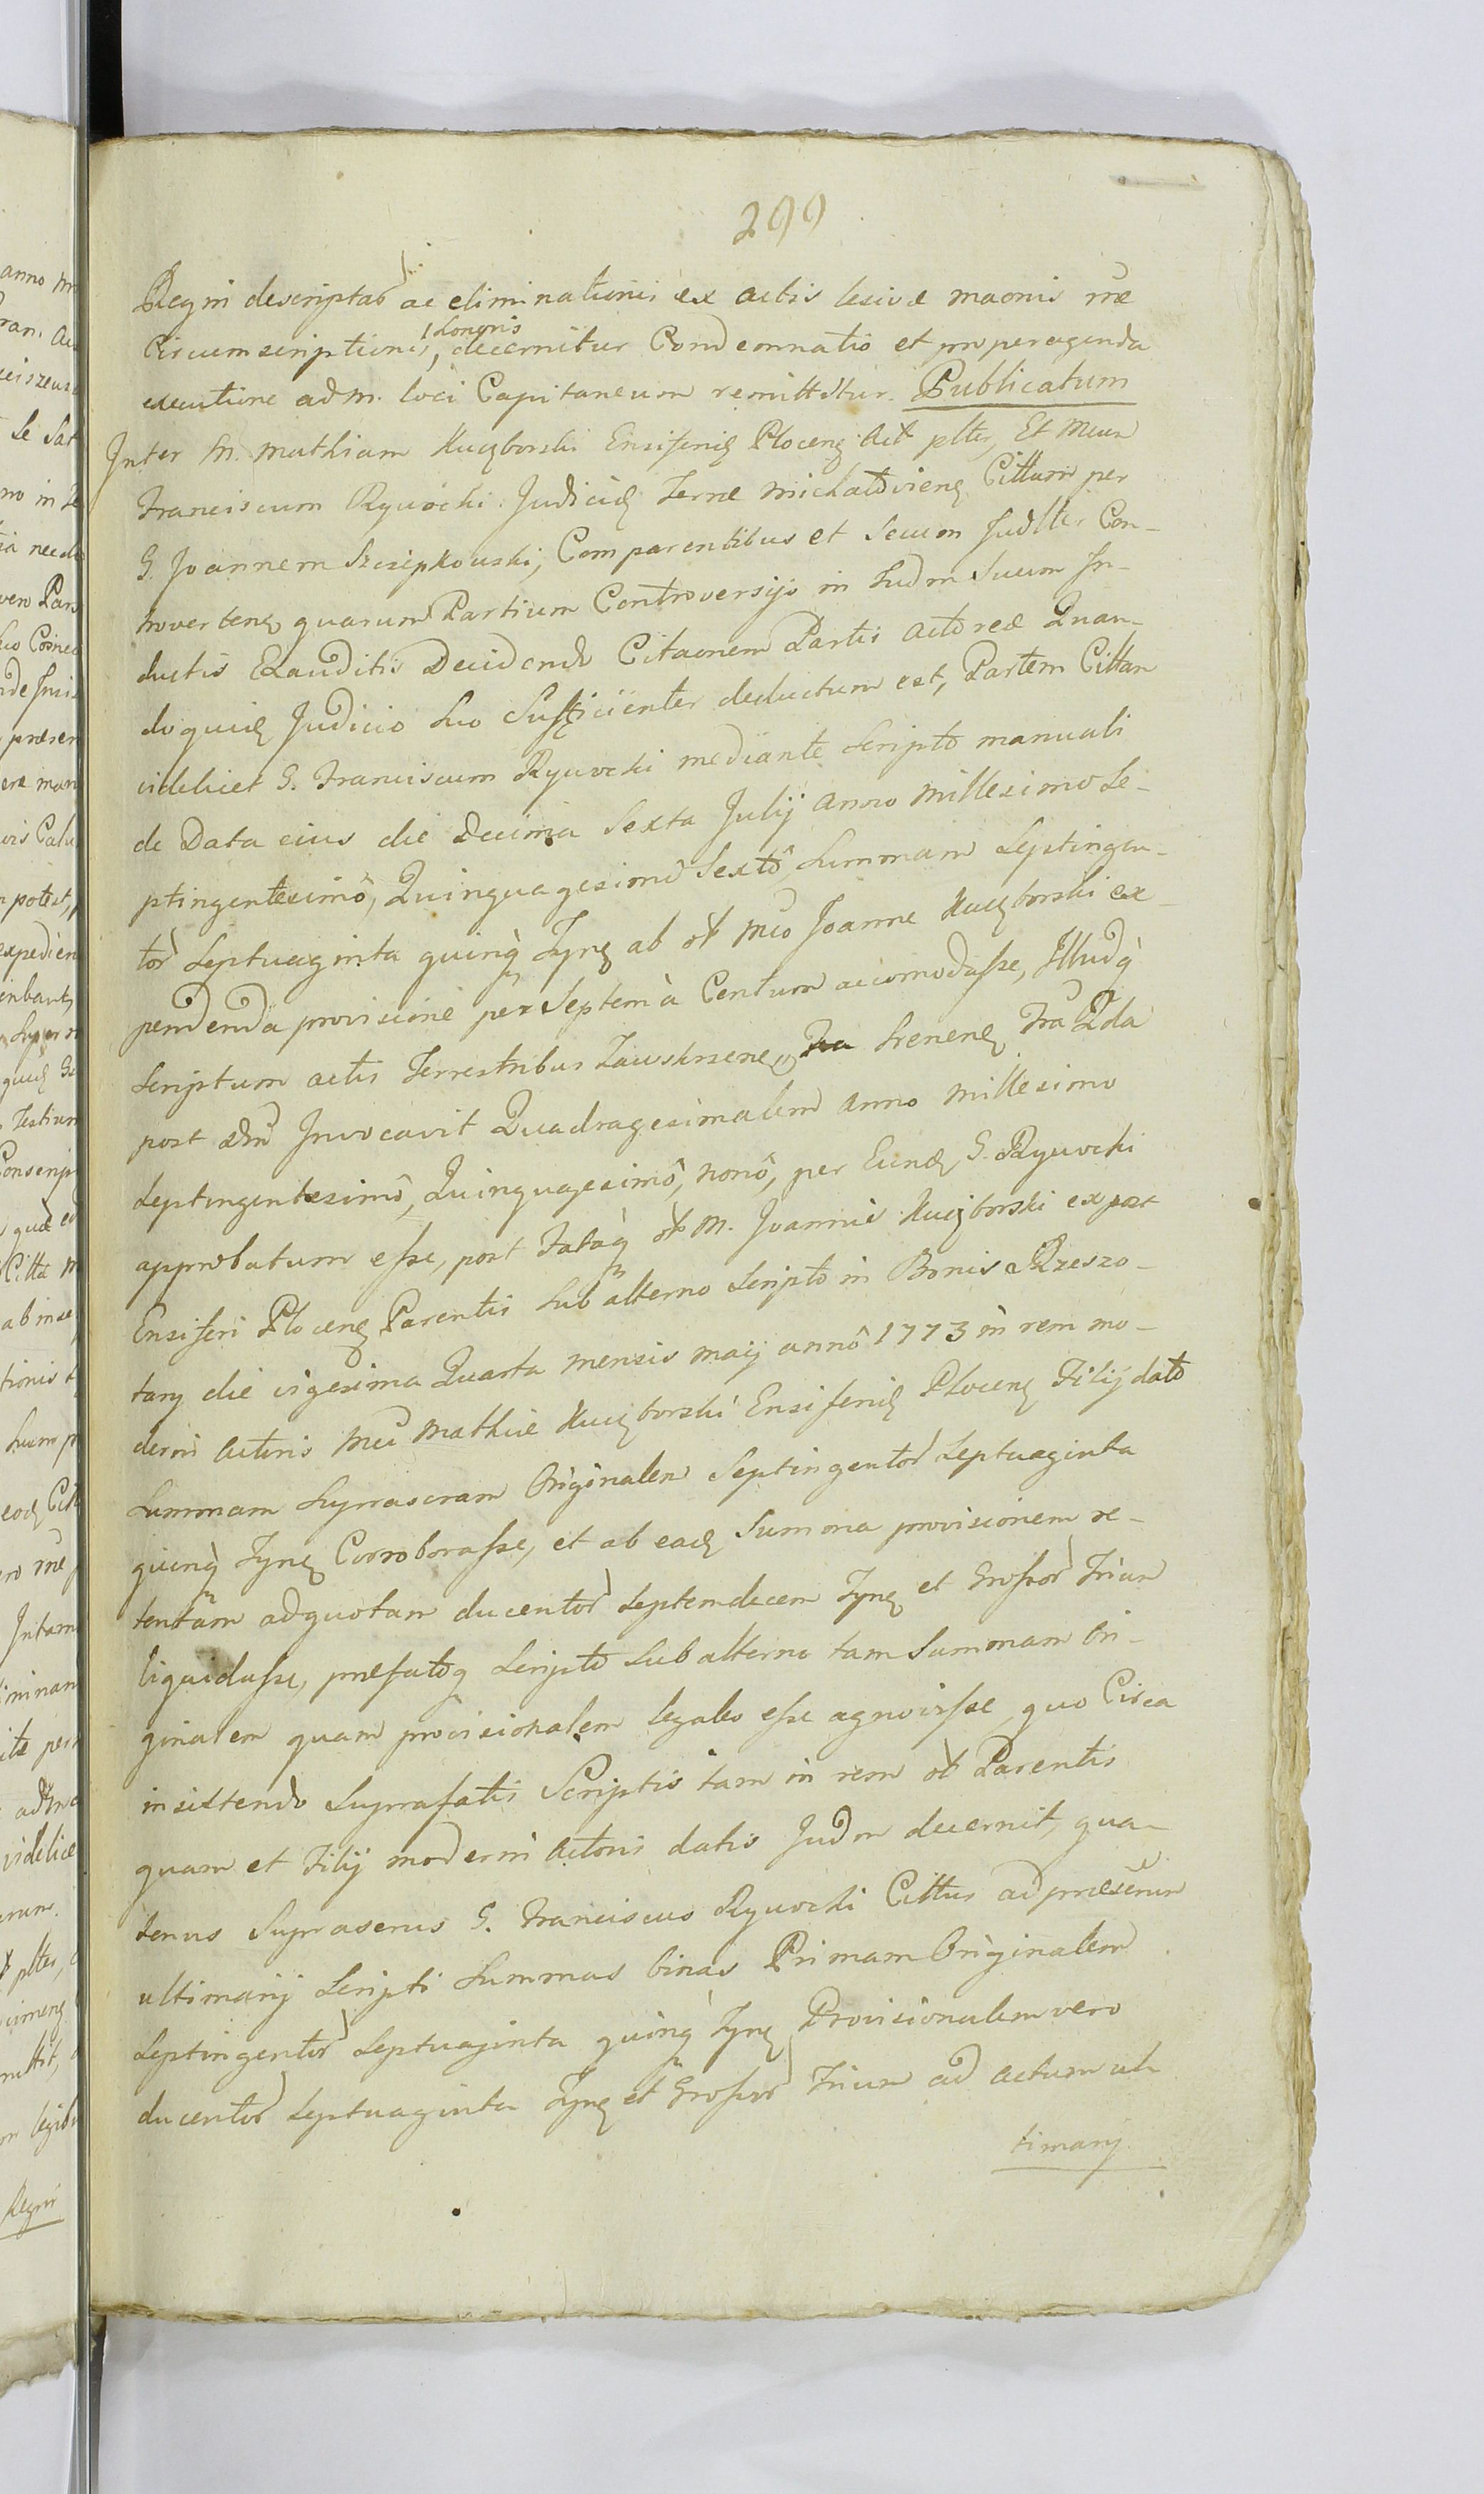 299
Regni descriptar ac eliminationis ex actis lesivæ maonis rræ
Circumscriptionis, Honoris decernitur Condemnatio et pro peragenda
executione ad M. loci Capitaneum remittitur. Publicatum
Inter M. Mathiam Kuczborski Ensiferidę Plocenę Act plter, Et Mcum
Franciscum Rywocki Judicidę Terræ Michałovienę Cittum per
G. Joannem Szczepkowski, Comparentibus et Secum Judlter Con-
trovertenę quarum Partium Controversijs in Judm Suum In-
ductis Exauditis Decidendo Citaonem Partis Actoreæ Quan-
doquidę Judicio Suo Sufficienter deductum est, Partem Cittam
videlicet G. Franciscum Rywocki mediante Scripto manuali
de Data eius die Decima Sexta Julij Anno Millesimo Se-
ptingentesimô, Quinquagesimô Sextô, Summam Septingen-
tor Septuaginta quinq Tynę ab ol Mco Joanne Kuczborski ex-
pendenda provisione per Septem à Centum accomodasse, Illudq
Scriptum actis Terrestribus Zawskrzenę Srenenę Fra 2da
post Dm Invocavit Quadragesimalem Anno Millesimo
Septingentesimô, Quinquagesimô, nonô, per Eundę G. Rywocki
approbatum esse, post Fataq ol M. Joannis Kuczborski expost
Ensiferi Plocenę Parentis Sub alterno Scripto in Bonis Rzeszo-
tary die vigesima Quarta mensis Maij annô 1773 in rem mo-
derni Actoris Mci Mathiæ Kuczborski Ensiferidę Plocenę Filij dato
Summam Suprascram Originalem Septingentor Septuaginta
quinq Tynę Corroborasse, et ab eadę Summa provisionem re-
tentam ad quotam ducentor Septemdecem Tynę et Grossor Trium
liquidasse, præfatoq Scripto Sub alterno tam Summam Ori-
ginalem quam provisionalem legales esse agnovisse, quo Circa
insistendo Suprafatis Scriptis tam in rem ol Parentis
quam et Filij moderni Actoris datis Judm decernit, qua-
tenus Suprascrus G. Franciscus Rywocki Cittus ad præsenm
ultimarij Scripti Summas binas Primam Originalem
Septingentor Septuaginta quinq Tynę Provisionalem vero
ducentor Septuaginta Tynę et Grossor Trium ad actum ul-
timarij